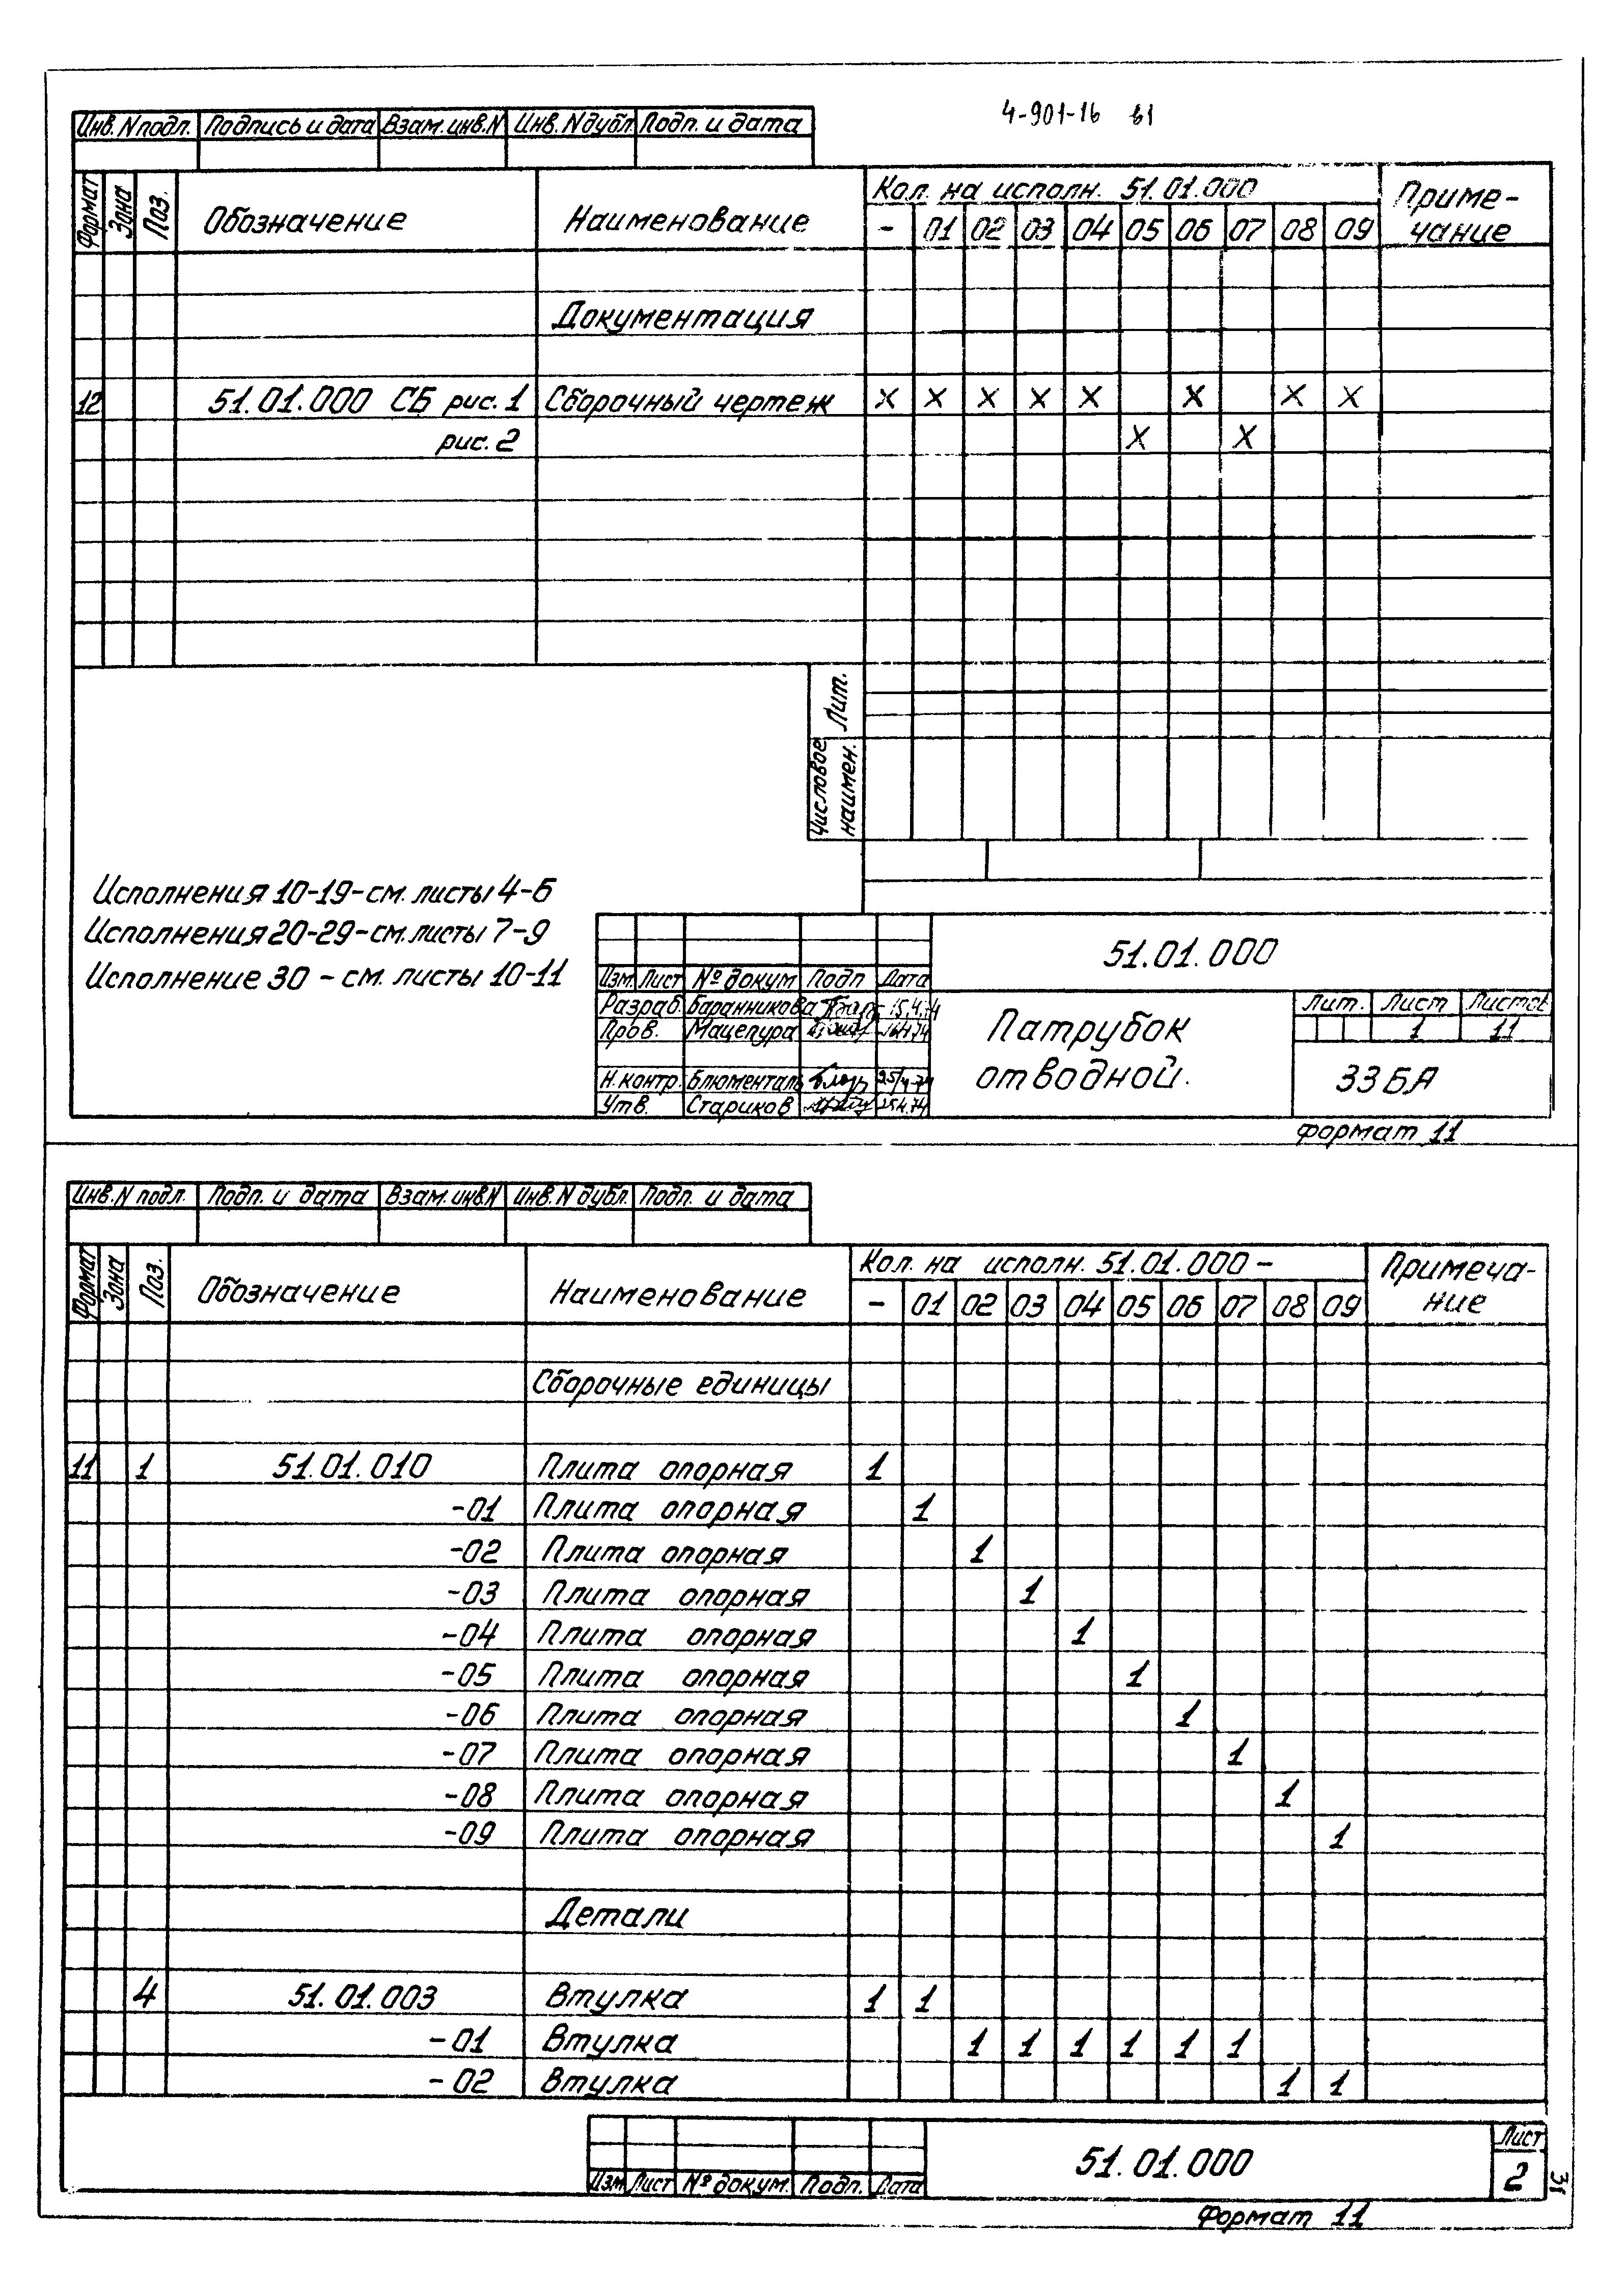 4-901-16 в1
Инв. N подл. Подпись и дата Взам. инв. N Инв. N дубл. Подп. и дата
Формат Зона Поз. Обозначение Наименование Кол. на исполн. 51.01.000 Приме-
- 01 02 03 04 05 06 07 08 09 чание
Документация
12 51.01.000 СБ рис. 1 Сборочный чертеж X X X X X X X X
рис. 2 X X
Лит.
Числовое наимен.
Исполнения 10-19-см. листы 4-6
Исполнения 20-29-см. листы 7-9
Исполнение 30 - см. листы 10-11
51.01.000
Изм. Лист № докум Подп Дата
Разраб. Баранникова 15.4.74
Пров. Мацепура 16.4.74
Н. контр. Блюменталь
Утв. Стариков 25.4.74
Патрубок
отводной.
Лит. Лист Листов
1 11
33 БА
Формат 11
Инв. N подл. Подп. и дата Взам. инв. N Инв. N дубл. Подп. и дата
Формат Зона Поз. Обозначение Наименование Кол. на исполн. 51.01.000 - Примеча-
- 01 02 03 04 05 06 07 08 09 ние
Сборочные единицы
11 1 51.01.010 Плита опорная 1
-01 Плита опорная 1
-02 Плита опорная 1
-03 Плита опорная 1
-04 Плита опорная 1
-05 Плита опорная 1
-06 Плита опорная 1
-07 Плита опорная 1
-08 Плита опорная 1
-09 Плита опорная 1
Детали
4 51.01.003 Втулка 1 1
-01 Втулка 1 1 1 1 1 1
-02 Втулка 1 1
Изм Лист № докум. Подп. Дата
51.01.000
Лист
2
31
Формат 11